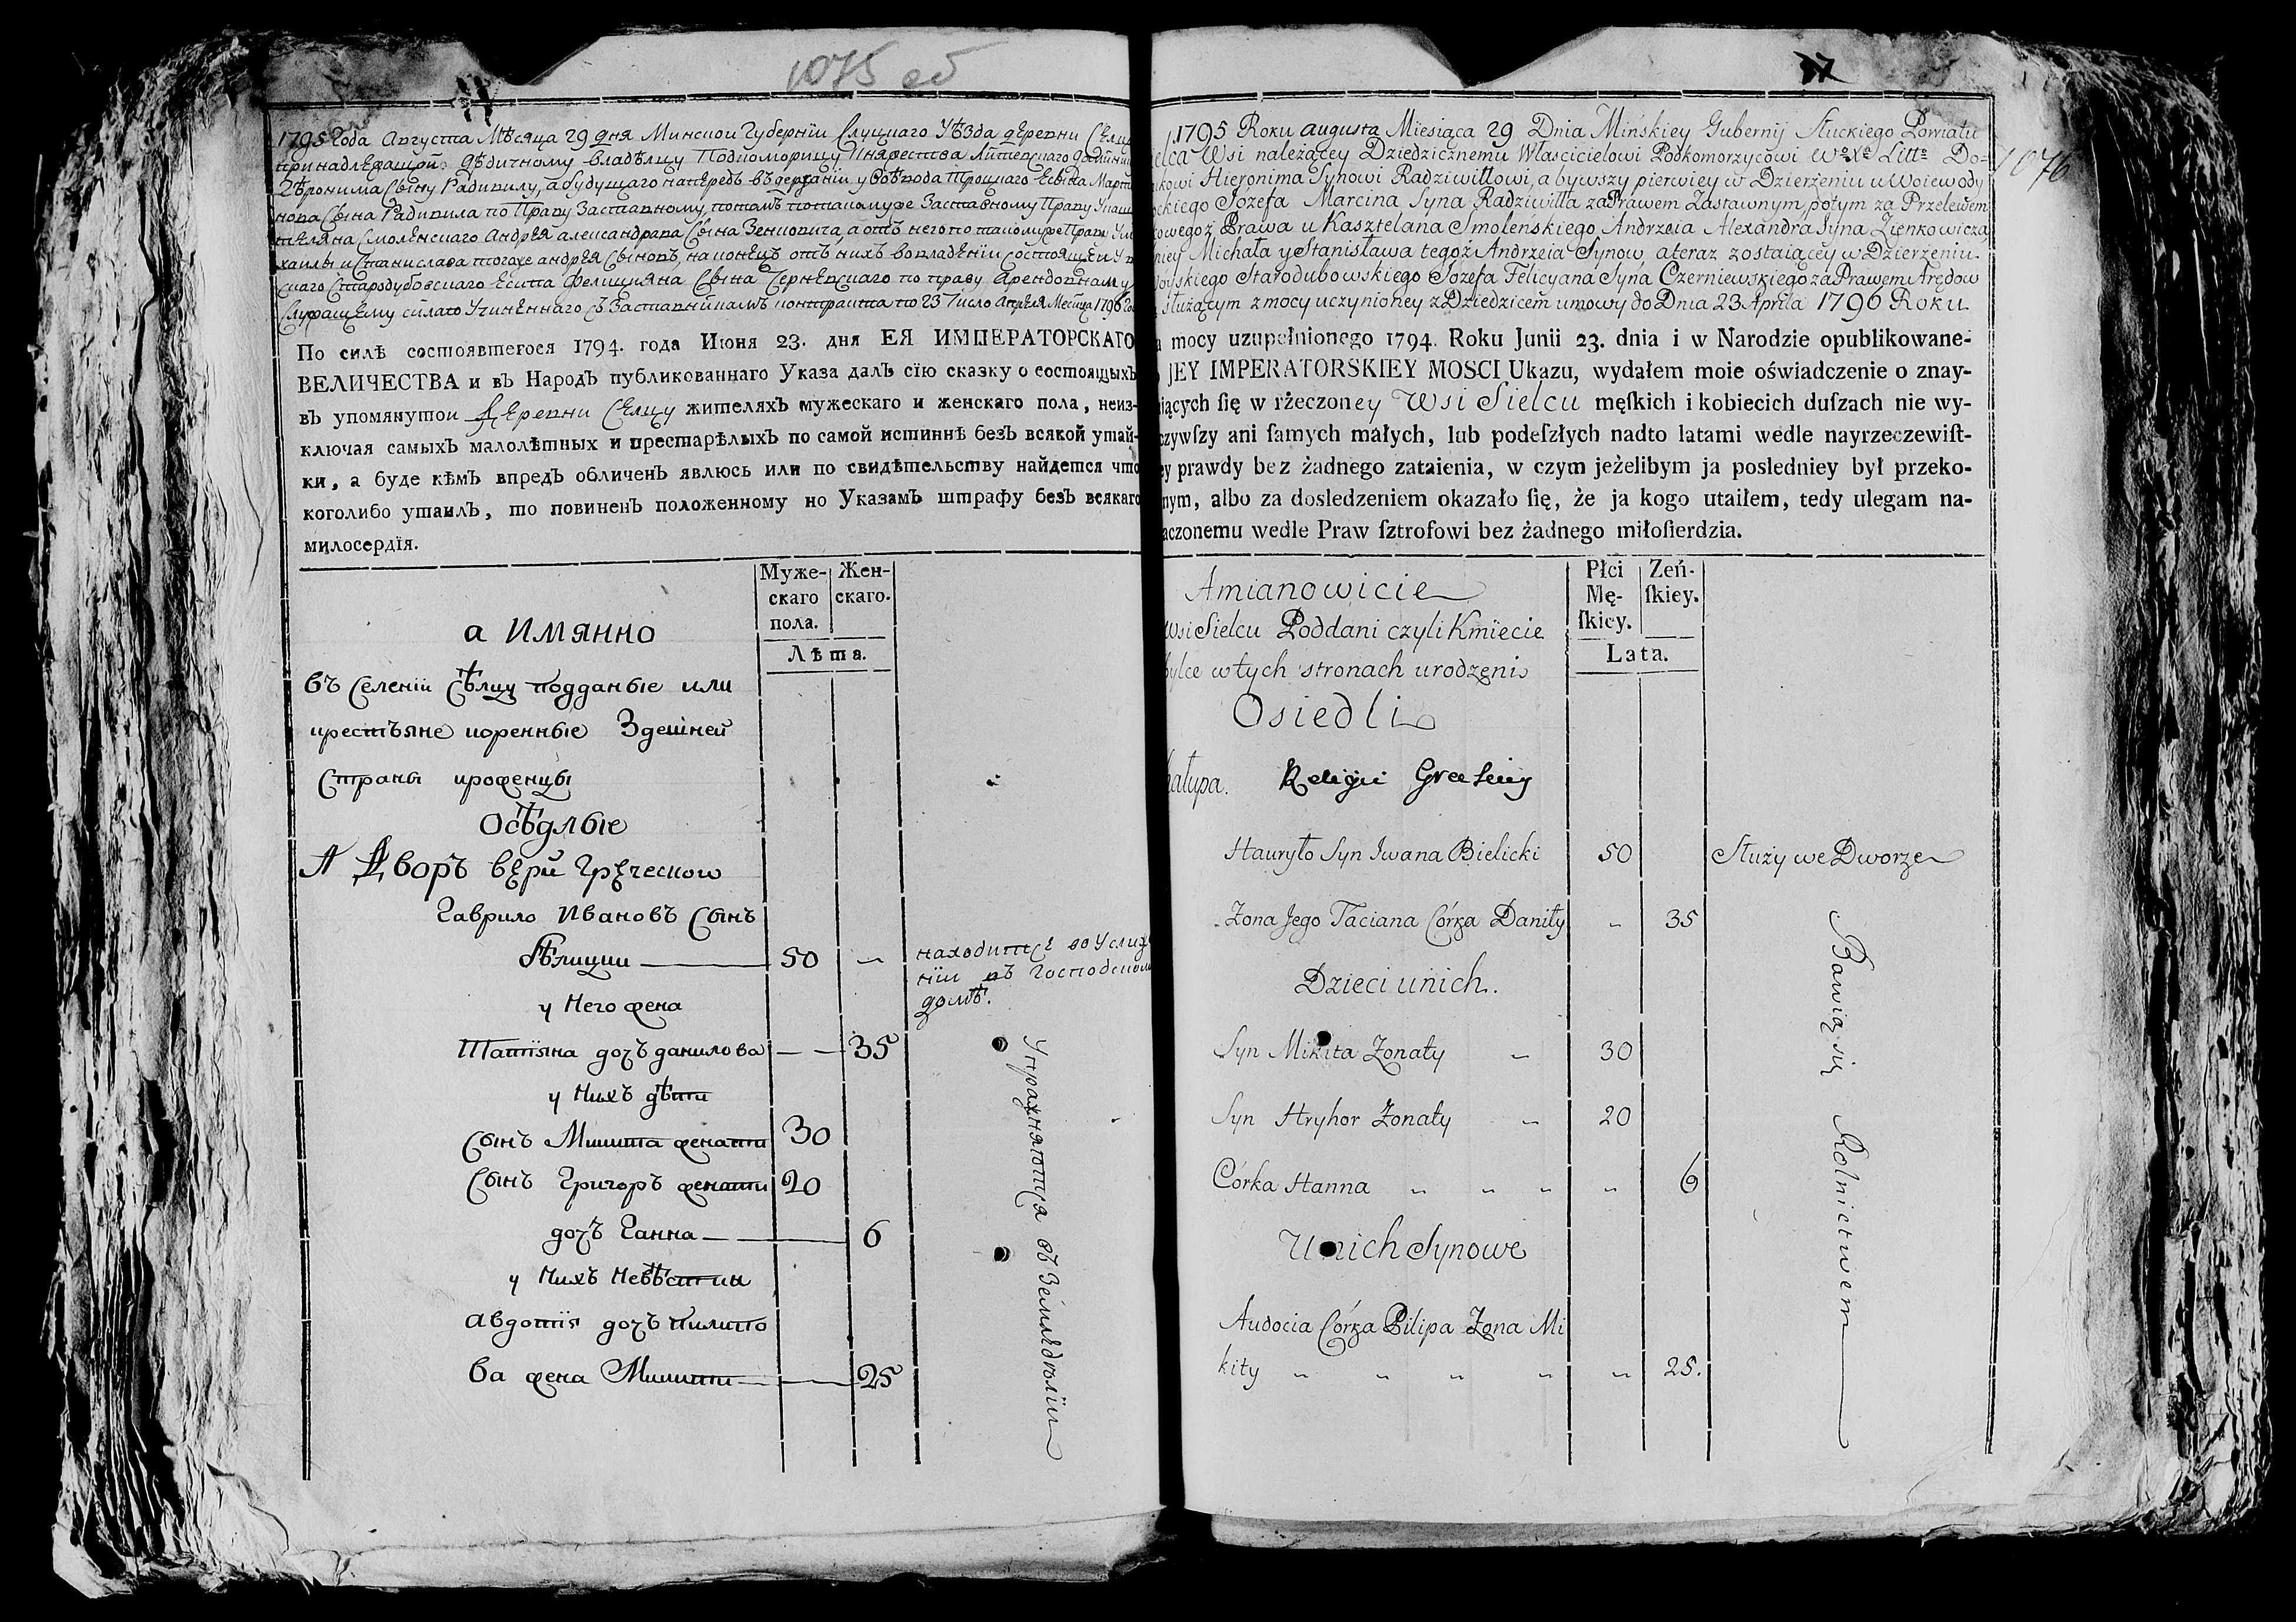 1075 об
1795 Года Августа Мѣсяца 29 дня Минской Губернїи Слуцкаго Уѣзда деревни Селц
принадлежащой дѣдичному владѣлцу Подкоморицу Княжества Литовскаго Доминик
Геронима Сыну Радивилу, а будущаго напередъ въ держанїи у Воѣвода Троцкаго Есифа Марти
нова Сына Радивила по Праву Заставному, потомъ потакомуже Заставному Праву Укаш
теляна Смоленскаго Андрея александрова Сына Зенковича, а отъ него по такомуже Праву У Ми
хаилы и Станислава тогоже андрея Сыновъ, наконецъ отъ нихъ во владѣнїи состоящей У
скаго Стародубовскаго Есифа Фелицияна Сына Черневскаго по праву Арендовному
Служащему силою Учиненнаго съ Заставнїкамъ контракта по 23 Число Апреля Месяца 1796 Го
По силѣ состоявшегося 1794. года Июня 23. дня ЕЯ ИМПЕРАТОРСКАГО
ВЕЛИЧЕСТВА и въ Народъ публикованнаго Указа далъ сїю сказку о состоящыхъ
въ упомянутои Деревни Селцу жителяхъ мужескаго и женскаго пола, неиз-
ключая самыхъ малолѣтныхъ и престарѣлыхъ по самой истиннѣ безъ всякой утай-
ки, а буде кѣмъ впредъ обличенъ явлюсь или по свидѣтельству найдется что
коголибо утаилъ, то повиненъ положенному по Указамъ штрафу безъ всякаго
милосердїя.
Муже-
скаго
пола.
Жен-
скаго.
Лѣта.
а Имянно
въ Селенїи Сѣлцу подданые или
крестъяне коренные Здешней
Страны уроженцы
Осѣдлые
А Дворъ вери Греческого
Гаврило Ивановъ Сынъ
Бѣлицки 50 находитсе во Услуже
нїи въ Господском
домѣ.
у Него жена
Татїяна дочъ данилова 35
у Нихъ дѣти
Сынъ Микита женати 30
Сынъ Григоръ женати 20
дочъ Ганна 6
у Нихъ Невѣстки
авдотїя дочъ пилипо
ва жена Микити 25
Упражняютца въ Земледѣлїи
37
1076
1795 Roku augusta Miesiąca 29 Dnia Mińskiey Gubernij Słuckiego Powiatu
ielca Wsi należącey Dziedzicznemu Włascicielowi Podkomorzycowi Wo Xo Litto Do=
ikowi Hieronima Synowi Radziwiłłowi, a bywszy pierwiey w Dzierżeniu u Woiewody
ockiego Jozefa Marcina Syna Radziwiłła za Prawem Zastawnym, potym za Przelewem
kowegoż Prawa u Kasztelana Smoleńskiego Andrzeia Alexandra Syna Zienkowicza,
niey Michała y Stanisława tegoż Andrzeia Synow, a teraz zostaiącey w Dzierżeniu
oyskiego Starodubowskiego Jozefa Felicyana Syna Czerniewskiego za Prawem Arędow
Służącym z mocy uczynioney z Dziedzicem umowy do Dnia 23 Aprila 1796 Roku
a mocy uzupełnionego 1794. Roku Junii 23. dnia i w Narodzie opublikowane-
o JEY IMPERATORSKIEY MOSCI Ukazu, wydałem moie oświadczenie o znay-
iących ſię w rżeczoney Wsi Sielcu męſkich i kobiecich duſzach nie wy-
czywſzy ani ſamych małych, lub podeſzłych nadto latami wedle nayrzeczewiſt-
ey prawdy bez żadnego zataienia, w czym jeżelibym ja posledniey był przeko-
nym, albo za dosledzeniem okazało ſię, że ja kogo utaiłem, tedy ulegam na-
aczonemu wedle Praw ſztrofowi bez żadnego miłoſierdzia.
Płci
Mę-
ſkiey.
Zeń-
ſkiey.
Lata.
Amianowicie
Wsi Sielcu Poddani czyli Kmiecie
bylce w tych stronach urodzeni
Osiedli
hałupa. Religii Greckiey
Hauryło Syn Iwana Bielicki 50 Służy we Dworze
Zona Jego Taciana Córka Daniły 35
Dzieci u nich.
Syn Mikita Zonaty 30
Syn Hryhor Zonaty 20
Córka Hanna 6
U nich Synowe
Audocia Córka Pilipa Zona Mi
kity 25.
Bawią się Rolnictwem